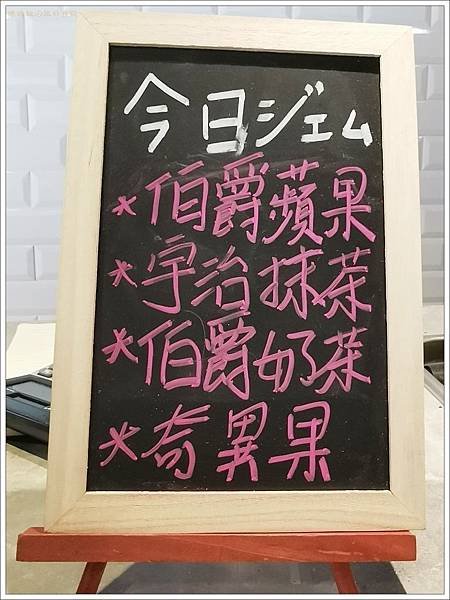 今日ジェム
*伯爵蘋果
*宇治抹茶
*伯爵奶茶
*奇異果